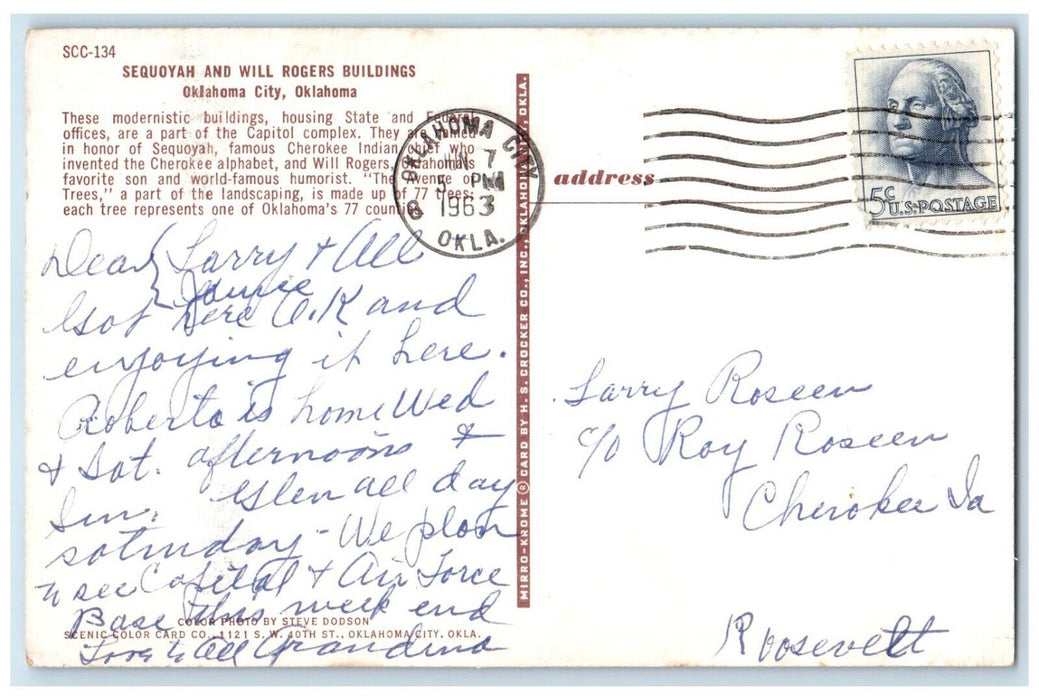 SCC-134
SEQUOYAH AND WILL ROGERS BUILDINGS
Oklahoma City, Oklahoma
These modernistic buildings, housing State and Federal
offices, are a part of the Capitol complex. They are named
in honor of Sequoyah, famous Cherokee Indian chief who
invented the Cherokee alphabet, and Will Rogers, Oklahoma's
favorite son and world-famous humorist. "The Avenue of
Trees," a part of the landscaping, is made up of 77 trees;
each tree represents one of Oklahoma's 77 counties.
Dear Larry + All
Got here O.K and
enjoying it here.
Roberta is home Wed
+ Sat. afternoons +
Sun. Glen all day
saturday - We plan
to see Capital + Air Force
Base this week end
Love to All Grandma
COLOR PHOTO BY STEVE DODSON
SCENIC COLOR CARD CO., 1121 S. W. 40TH ST., OKLAHOMA CITY, OKLA.
MIRRO-KROME ® CARD BY H. S. CROCKER CO., INC., OKLAHOMA CITY, OKLA.
OKLAHOMA CITY
7
5 PM
1963
OKLA.
address
5c U.S. POSTAGE
Larry Roseen
c/o Roy Roseen
Cherokee Ia
Roosevelt